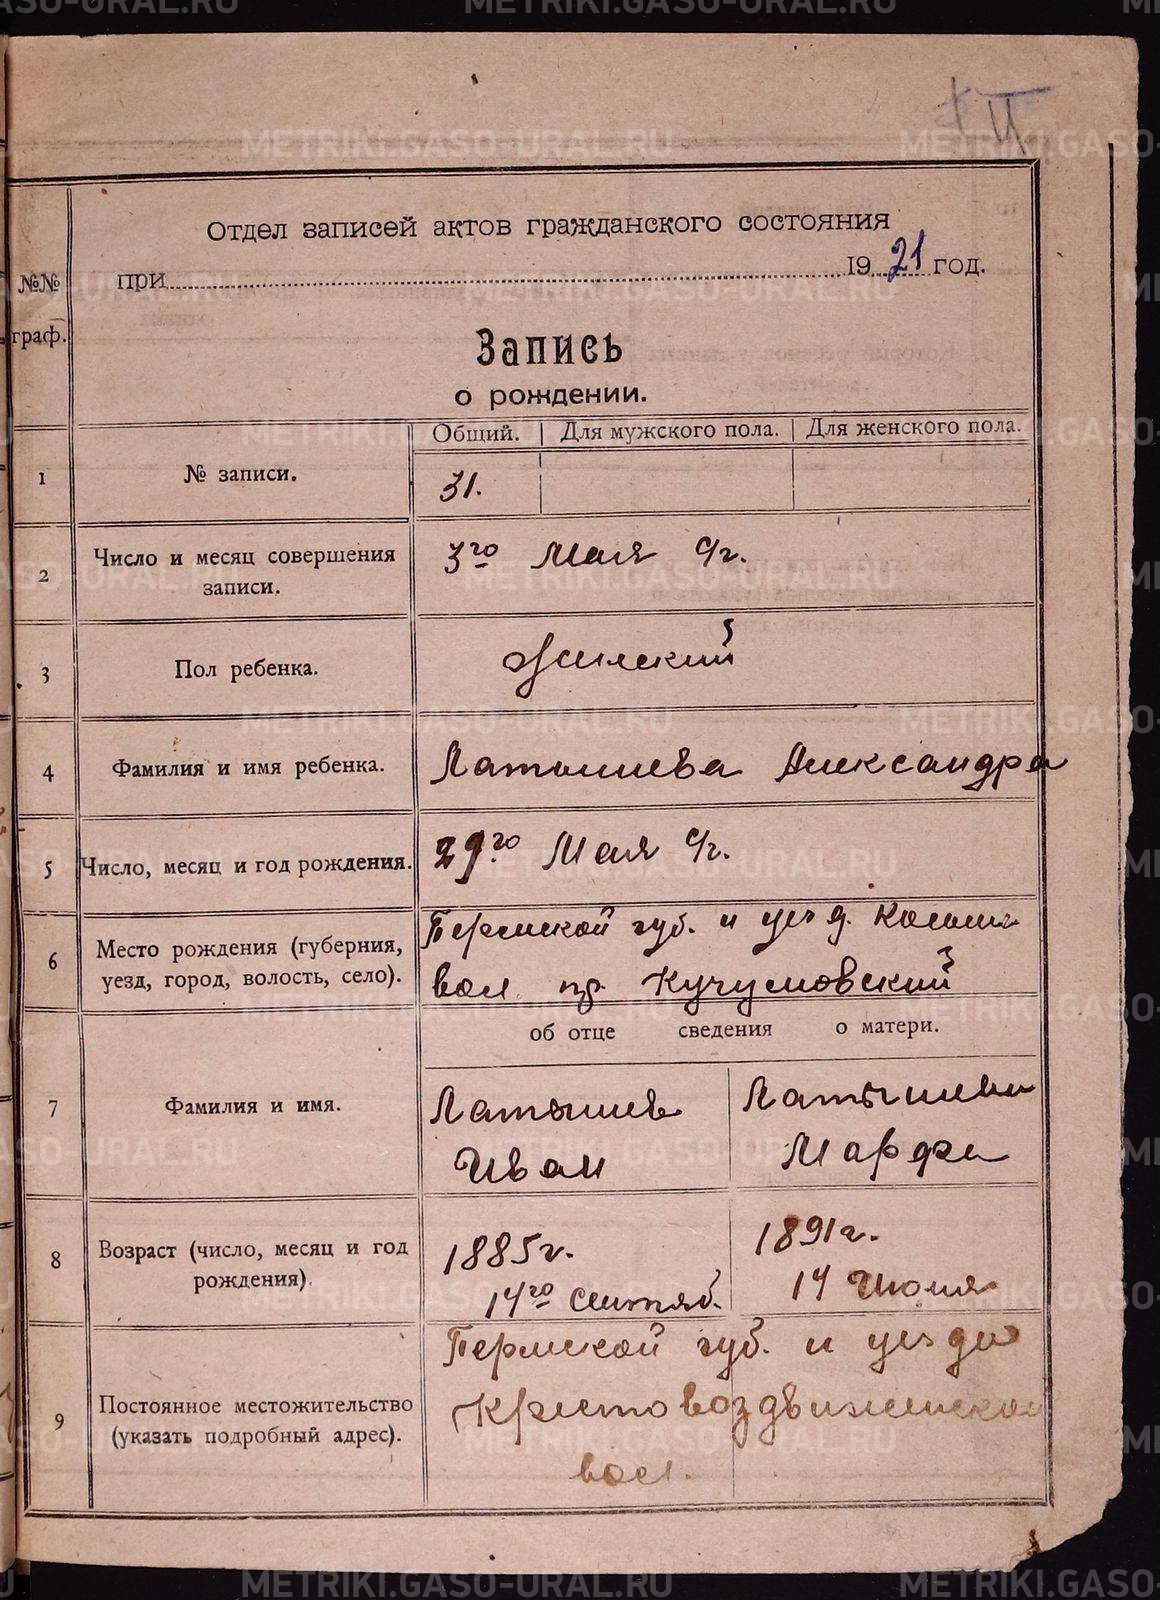 II
Отдел записей актов гражданского состояния
при 1921 год.
№№ граф.
Запись
о рождении.
Общий. Для мужского пола. Для женского пола.
1 № записи. 31.
2 Число и месяц совершения записи. 3го Мая с/г.
3 Пол ребенка. Женский
4 Фамилия и имя ребенка. Латышева Александра
5 Число, месяц и год рождения. 29го Мая с/г.
6 Место рождения (губерния, уезд, город, волость, село). Пермской губ. и уезд.
вол. пр. Кучумовский
об отце сведения о матери.
7 Фамилия и имя. Латышев Иван Латышева Марфа
8 Возраст (число, месяц и год рождения). 1885г. 14го Сентяб. 1891г. 14 Июля
9 Постоянное местожительство (указать подробный адрес). Пермской губ. и уезда
Крестовоздвиженской
вол.
METRIKI.GASO-URAL.RU